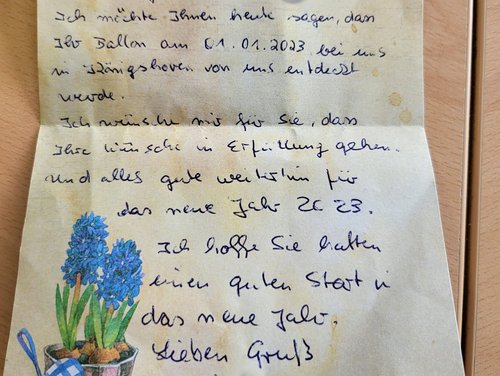 Ich möchte Ihnen heute sagen, dass
Ihr Ballon am 01.01.2023 bei uns
in Königshoven von uns entdeckt
wurde.
Ich wünsche mir für Sie, dass
Ihre Wünsche in Erfüllung gehen.
Und alles gute weiterhin für
das neue Jahr 2023.
Ich hoffe Sie hatten
einen guten Start in
das neue Jahr.
Lieben Gruß